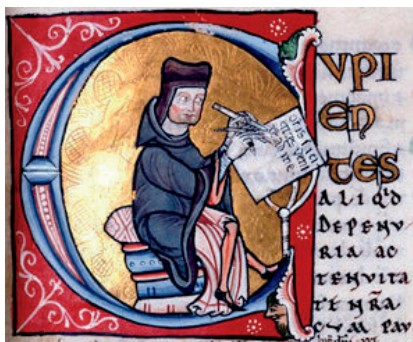 CVPI
EN
TES
ALIQ'D
DEPENV
RIA AC
TENVITA
TE NR̄A
CVM PAV